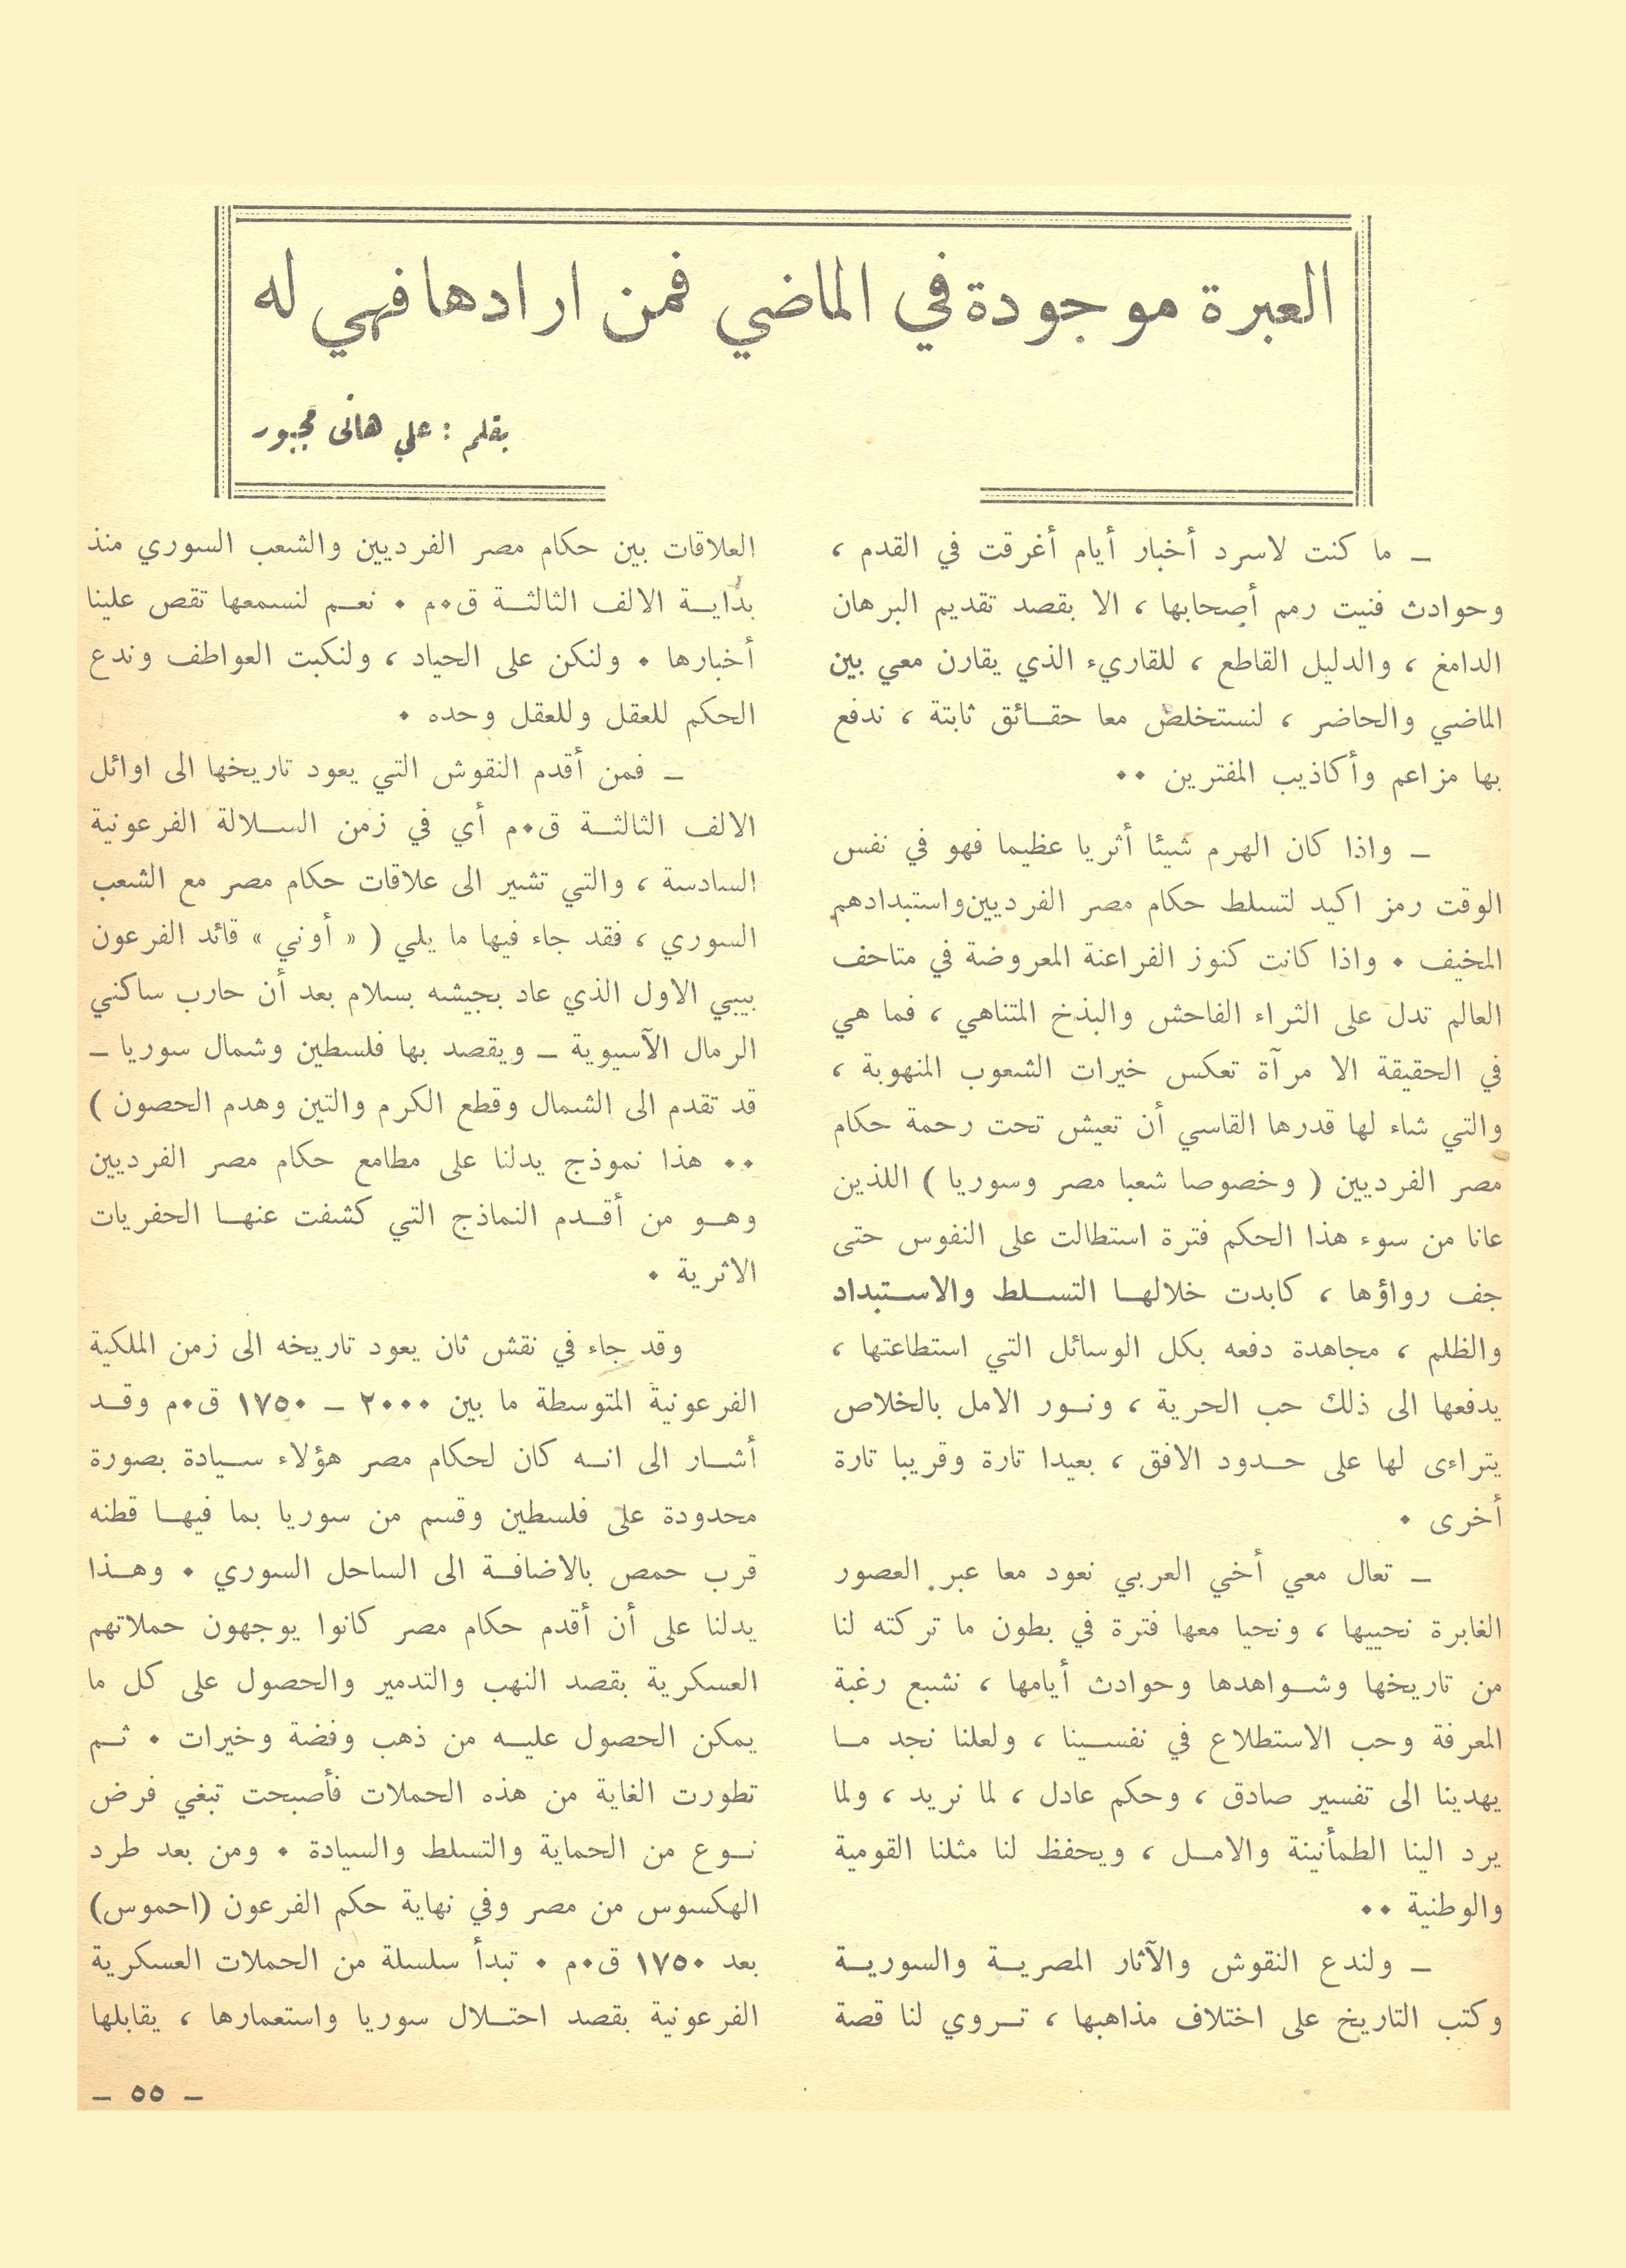 العبرة موجودة في الماضي فمن ارادها فهي له
بقلم : علي هاني مجبور
ـ ما كنت لاسرد أخبار أيام أغرقت في القدم ،
وحوادث فنيت رمم أصحابها ، الا بقصد تقديم البرهان
الدامغ ، والدليل القاطع ، للقاريء الذي يقارن معي بين
الماضي والحاضر ، لنستخلص معا حقـائق ثابتة ، ندفع
بها مزاعم وأكاذيب المفترين ٠٠
ـ واذا كان الهرم شيئا أثريا عظيما فهو في نفس
الوقت رمز اكيد لتسلط حكام مصر الفرديين واستبدادهم
المخيف ٠ واذا كانت كنوز الفراعنة المعروضة في متاحف
العالم تدل على الثراء الفاحش والبذخ المتناهي ، فما هي
في الحقيقة الا مرآة تعكس خيرات الشعوب المنهوبة ،
والتي شاء لها قدرها القاسي أن تعيش تحت رحمة حكام
مصر الفرديين ( وخصوصا شعبا مصر وسوريا ) اللذين
عانا من سوء هذا الحكم فترة استطالت على النفوس حتى
جف رواؤها ، كابدت خلالهـا التسـلط والاسـتبداد
والظلم ، مجاهدة دفعه بكل الوسائل التي استطاعتها ،
يدفعها الى ذلك حب الحرية ، ونـور الامل بالخلاص
يتراءى لها على حـدود الافق ، بعيدا تارة وقريبا تارة
أخرى ٠
ـ تعال معي أخي العربي نعود معا عبر العصور
الغابرة نحييها ، ونحيا معها فترة في بطون ما تركته لنا
من تاريخها وشـواهدها وحوادث أيامها ، نشبع رغبة
المعرفة وحب الاستطلاع في نفسـينا ، ولعلنا نجد مـا
يهدينا الى تفسير صادق ، وحكم عادل ، لما نريد ، ولما
يرد الينا الطمأنينة والامـل ، ويحفظ لنا مثلنا القومية
والوطنية ٠٠
ـ ولندع النقوش والآثار المصريـة والسوريـة
وكتب التاريخ على اختلاف مذاهبها ، تـروي لنا قصة
العلاقات بين حكام مصر الفرديين والشعب السوري منذ
بدايـة الالف الثالثـة ق٠م ٠ نعـم لنسمعها تقص علينا
أخبارها ٠ ولنكن على الحياد ، ولنكبت العواطف وندع
الحكم للعقل وللعقل وحده ٠
ـ فمن أقدم النقوش التي يعود تاريخها الى اوائل
الالف الثالثـة ق٠م أي في زمن السـلالة الفرعونية
السادسة ، والتي تشير الى علاقات حكام مصر مع الشعب
السوري ، فقد جاء فيها ما يلي ( « أوني » قائد الفرعون
بيبي الاول الذي عاد بجيشه بسلام بعد أن حارب ساكني
الرمال الآسيوية ـ ويقصد بها فلسطين وشمال سوريا ـ
قد تقدم الى الشمال وقطع الكرم والتين وهدم الحصون )
٠٠ هذا نموذج يدلنا على مطامع حكام مصر الفرديين
وهـو من أقـدم النماذج التي كشفت عنهـا الحفريات
الاثرية ٠
وقد جاء في نقش ثان يعود تاريخه الى زمن الملكية
الفرعونية المتوسطة ما بين ٢٠٠٠ ـ ١٧٥٠ ق٠م وقـد
أشـار الى انـه كان لحكام مصر هؤلاء سـيادة بصورة
محدودة على فلسطين وقسم من سوريا بما فيهـا قطنه
قرب حمص بالاضافـة الى الساحل السوري ٠ وهـذا
يدلنا على أن أقدم حكام مصر كانوا يوجهون حملاتهم
العسكرية بقصد النهب والتدمير والحصول على كل ما
يمكن الحصول عليـه من ذهب وفضة وخيرات ٠ ثـم
تطورت الغاية من هذه الحملات فأصبحت تبغي فرض
نـوع من الحماية والتسلط والسيادة ٠ ومن بعد طرد
الهكسوس من مصر وفي نهاية حكم الفرعون (احموس)
بعد ١٧٥٠ ق٠م ٠ تبدأ سلسلة من الحملات العسكرية
الفرعونية بقصد احتـلال سوريا واستعمارها ، يقابلها
ـ ٥٥ ـ